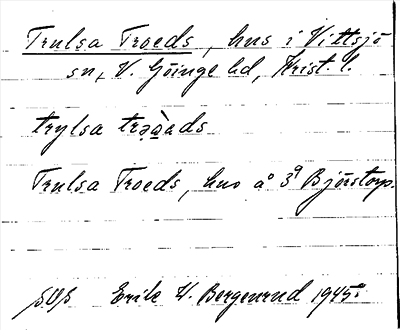 Trulsa Troeds, hus i Vittsjö
sn, V. Göinge hd, Krist. l.
trylsa
Trulsa Troeds, hus å 3⁹ Björstorp.
Erik W. Bergenrud 1945